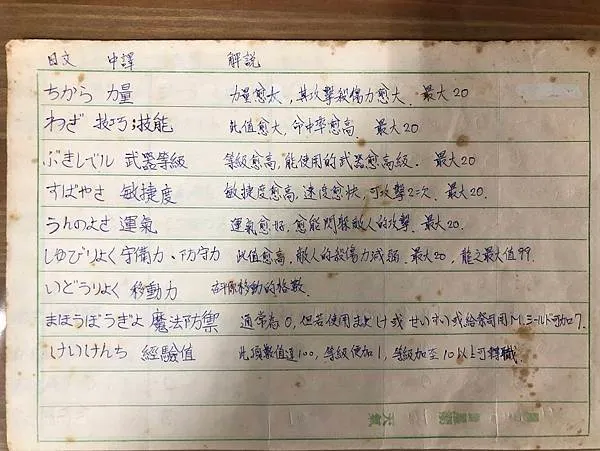 日文 中譯 解説
ちから 力量 力量愈大,其攻擊殺傷力愈大. 最大20
わざ 技巧;技能 此值愈大,命中率愈高 最大20
ぶきレベル 武器等級 等級愈高,能使用的武器愈高級. 最大20
すばやさ 敏捷度 敏捷度愈高,速度愈快,可攻擊2次. 最大20.
うんのよさ 運氣 運氣愈好,愈能閃躲敵人的攻擊. 最大20.
しゆびりよく 守備力、防守力 此值愈高,敵人的殺傷力減弱. 最大20, 龍之最大值99.
いどうりよく 移動力 移動的格數.
まほうぼうぎよ 魔法防禦 通常為0,但若使用まよけ或せいすい或給祭司用M.シールド可加7.
けいけんち 經驗值 此項數值達100,等級便加1,等級加至10以上可轉職